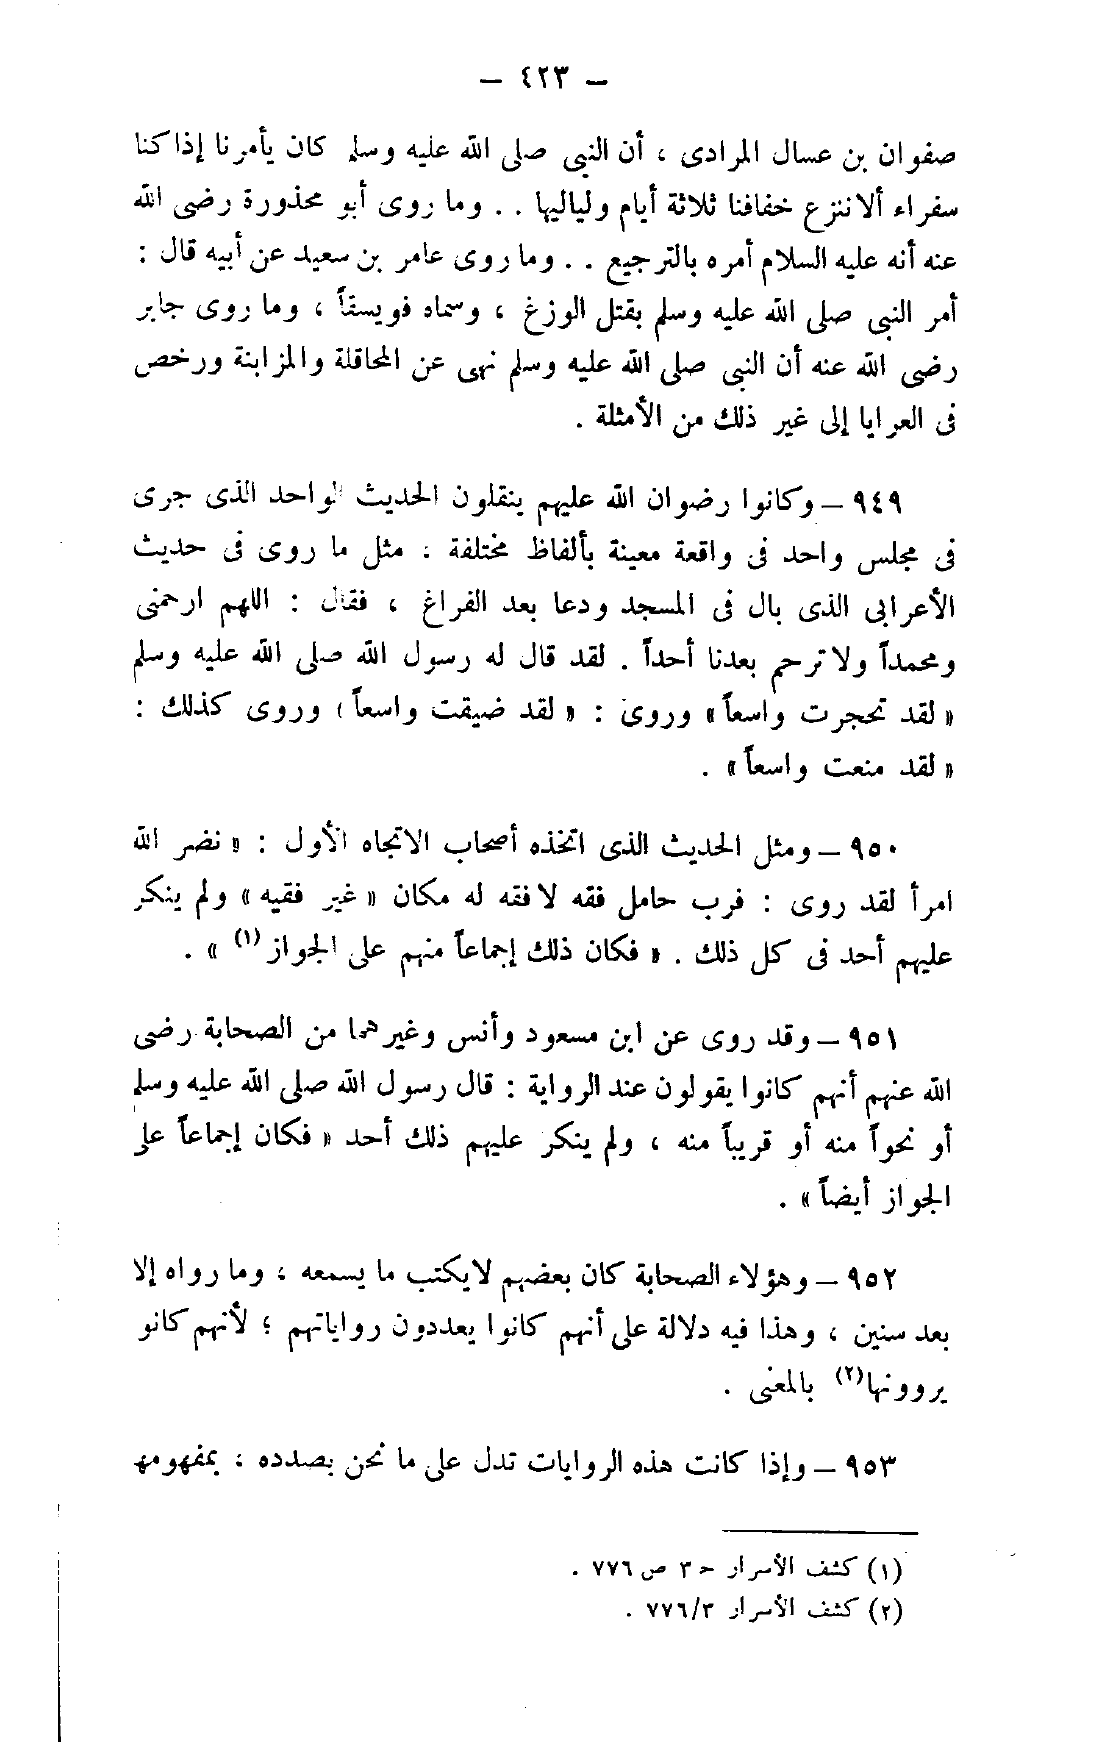 — ٤٢٣ —
صفوان بن عسال المرادى ، أن النبى صلى الله عليه وسلم كان يأمرنا إذا كنا
سفراء ألا ننزع خفافنا ثلاثة أيام ولياليها . . وما روى أبو محذورة رضى الله
عنه أنه عليه السلام أمره بالترجيع . . وما روى عامر بن سعيد عن أبيه قال :
أمر النبى صلى الله عليه وسلم بقتل الوزغ ، وسماه فويسقاً ، وما روى جابر
رضى الله عنه أن النبى صلى الله عليه وسلم نهى عن المحاقلة والمزابنة ورخص
فى العرايا إلى غير ذلك من الأمثلة .
٩٤٩ — وكانوا رضوان الله عليهم ينقلون الحديث الواحد الذى جرى
فى مجلس واحد فى واقعة معينة بألفاظ مختلفة : مثل ما روى فى حديث
الأعرابى الذى بال فى المسجد ودعا بعد الفراغ ، فقال : اللهم ارحمنى
ومحمداً ولا ترحم بعدنا أحداً . لقد قال له رسول الله صلى الله عليه وسلم
« لقد تحجرت واسعاً » وروى : « لقد ضيقت واسعاً ) وروى كذلك :
« لقد منعت واسعاً » .
٩٥٠ — ومثل الحديث الذى اتخذه أصحاب الاتجاه الأول : « نضر الله
امرأ لقد روى : فرب حامل فقه لا فقه له مكان « غير فقيه » ولم ينكر
عليهم أحد فى كل ذلك . « فكان ذلك إجماعاً منهم على الجواز (١) » .
٩٥١ — وقد روى عن ابن مسعود وأنس وغيرهما من الصحابة رضى
الله عنهم أنهم كانوا يقولون عند الرواية : قال رسول الله صلى الله عليه وسلم
أو نحواً منه أو قريباً منه ، ولم ينكر عليهم ذلك أحد « فكان إجماعاً على
الجواز أيضاً » .
٩٥٢ — وهؤلاء الصحابة كان بعضهم لا يكتب ما يسمعه ، وما رواه إلا
بعد سنين ، وهذا فيه دلالة على أنهم كانوا يعددون رواياتهم ؛ لأنهم كانو
يروونها (٢) بالمعنى .
٩٥٣ — وإذا كانت هذه الروايات تدل على ما نحن بصدده : بمفهومها
(١) كشف الأسرار ح ٣ ص ٧٧٦ .
(٢) كشف الأسرار ٧٧٦/٣ .